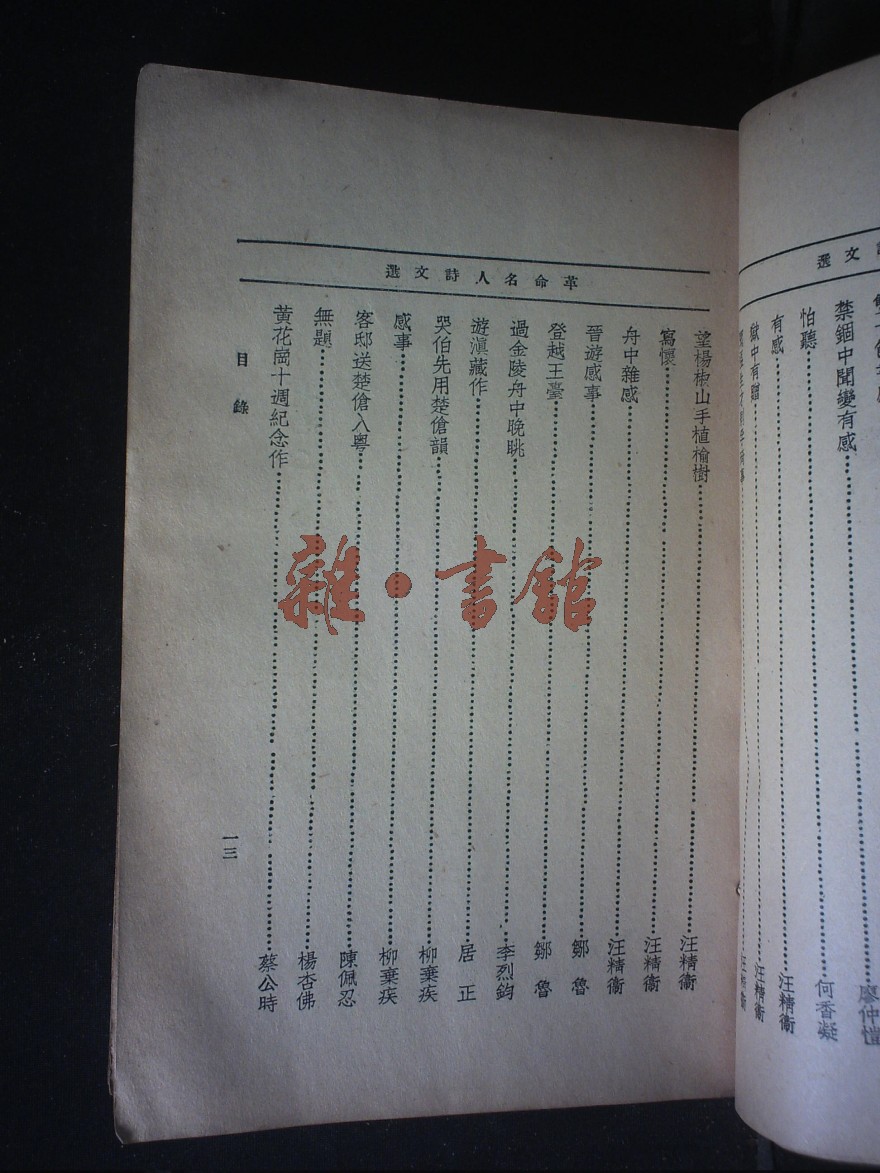 文選
禁錮中聞變有感 廖仲愷
怕聽 何香凝
有感 汪精衞
獄中有贈 汪精衞
革命名人詩文選
望楊椒山手植榆樹 汪精衞
寫懷 汪精衞
舟中雜感 汪精衞
晉遊感事 鄒魯
登越王臺 鄒魯
過金陵舟中晚眺 李烈鈞
遊滇藏作 居正
哭伯先用楚傖韻 柳棄疾
感事 柳棄疾
客邸送楚傖入粵 陳佩忍
無題 楊杏佛
黃花崗十週紀念作 蔡公時
目錄
一三
雜·書館